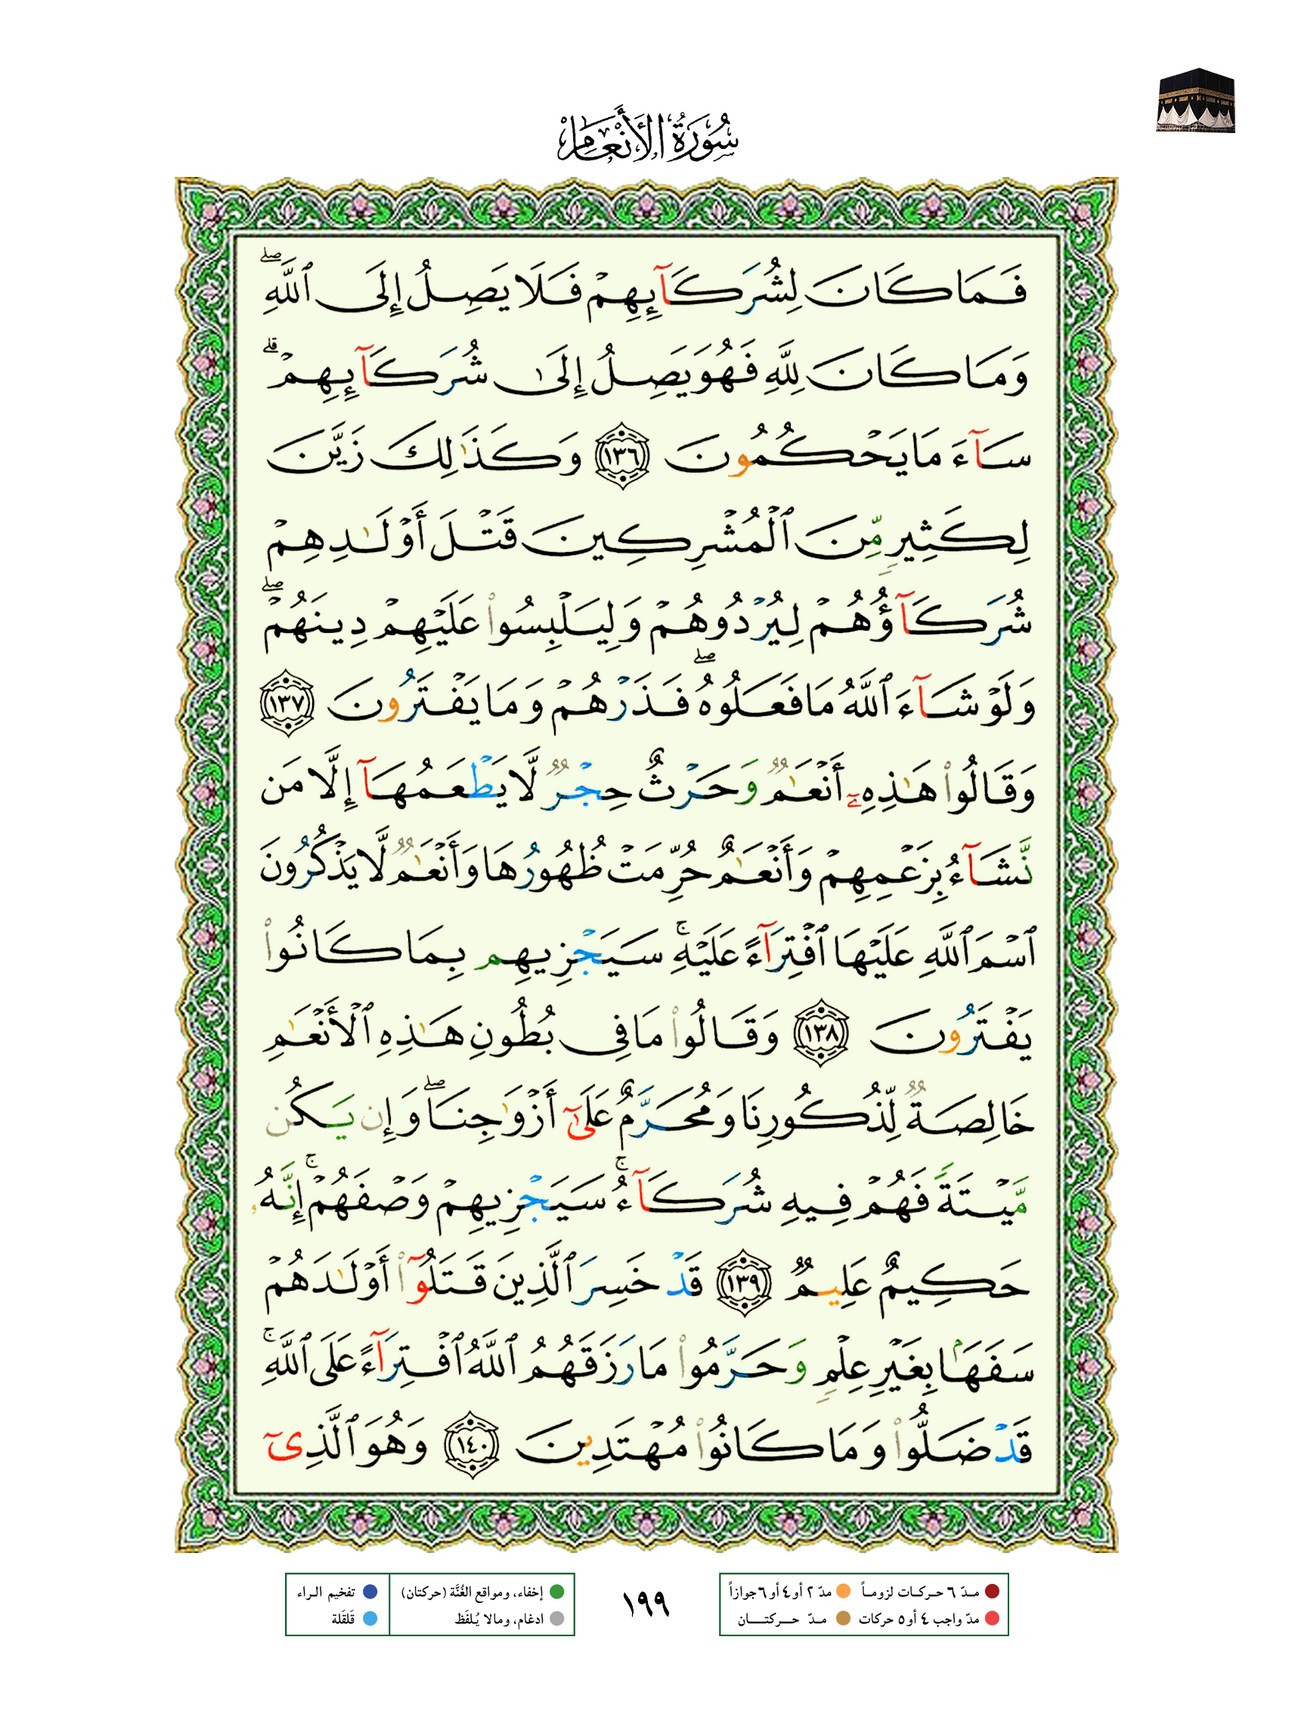 سُورَةُ الأَنْعَامِ
فَمَا كَانَ لِشُرَكَآئِهِمْ فَلَا يَصِلُ إِلَى ٱللَّهِ ۖ
وَمَا كَانَ لِلَّهِ فَهُوَ يَصِلُ إِلَىٰ شُرَكَآئِهِمْ ۗ
سَآءَ مَا يَحْكُمُونَ ١٣٦ وَكَذَٰلِكَ زَيَّنَ
لِكَثِيرٍ مِّنَ ٱلْمُشْرِكِينَ قَتْلَ أَوْلَٰدِهِمْ
شُرَكَآؤُهُمْ لِيُرْدُوهُمْ وَلِيَلْبِسُوا۟ عَلَيْهِمْ دِينَهُمْ ۖ
وَلَوْ شَآءَ ٱللَّهُ مَا فَعَلُوهُ ۖ فَذَرْهُمْ وَمَا يَفْتَرُونَ ١٣٧
وَقَالُوا۟ هَٰذِهِۦٓ أَنْعَٰمٌ وَحَرْثٌ حِجْرٌ لَّا يَطْعَمُهَآ إِلَّا مَن
نَّشَآءُ بِزَعْمِهِمْ وَأَنْعَٰمٌ حُرِّمَتْ ظُهُورُهَا وَأَنْعَٰمٌ لَّا يَذْكُرُونَ
ٱسْمَ ٱللَّهِ عَلَيْهَا ٱفْتِرَآءً عَلَيْهِ ۚ سَيَجْزِيهِم بِمَا كَانُوا۟
يَفْتَرُونَ ١٣٨ وَقَالُوا۟ مَا فِى بُطُونِ هَٰذِهِ ٱلْأَنْعَٰمِ
خَالِصَةٌ لِّذُكُورِنَا وَمُحَرَّمٌ عَلَىٰٓ أَزْوَٰجِنَا ۖ وَإِن يَكُن
مَّيْتَةً فَهُمْ فِيهِ شُرَكَآءُ ۚ سَيَجْزِيهِمْ وَصْفَهُمْ ۚ إِنَّهُۥ
حَكِيمٌ عَلِيمٌ ١٣٩ قَدْ خَسِرَ ٱلَّذِينَ قَتَلُوٓا۟ أَوْلَٰدَهُمْ
سَفَهًۢا بِغَيْرِ عِلْمٍ وَحَرَّمُوا۟ مَا رَزَقَهُمُ ٱللَّهُ ٱفْتِرَآءً عَلَى ٱللَّهِ ۚ
قَدْ ضَلُّوا۟ وَمَا كَانُوا۟ مُهْتَدِينَ ١٤٠ وَهُوَ ٱلَّذِىٓ
مدّ ٦ حركات لزوماً مدّ ٢ أو ٤ أو ٦ جوازاً
مدّ واجب ٤ أو ٥ حركات مدّ حركتان
١٩٩
إخفاء، ومواقع الغُنَّة (حركتان) تفخيم الراء
ادغام، ومالا يُلفَظ قَلقَلة